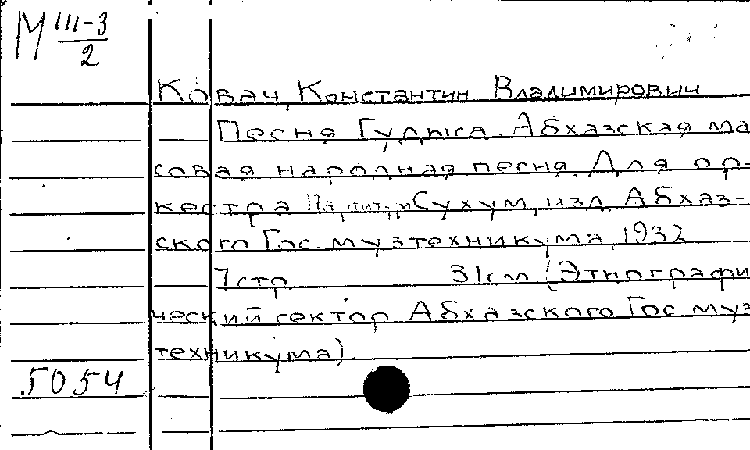 М III-3
2
Ковач, Константин Владимирович
— Песня Гудыса. Абхазская мас
совая народная песня. Для ор-
кестра Сухум, изд. Абхаз-
ского Гос. музтехникума, 1932
7 стр. 31 см (Этнографи
ческий сектор Абхазского Гос. муз
техникума).
5054